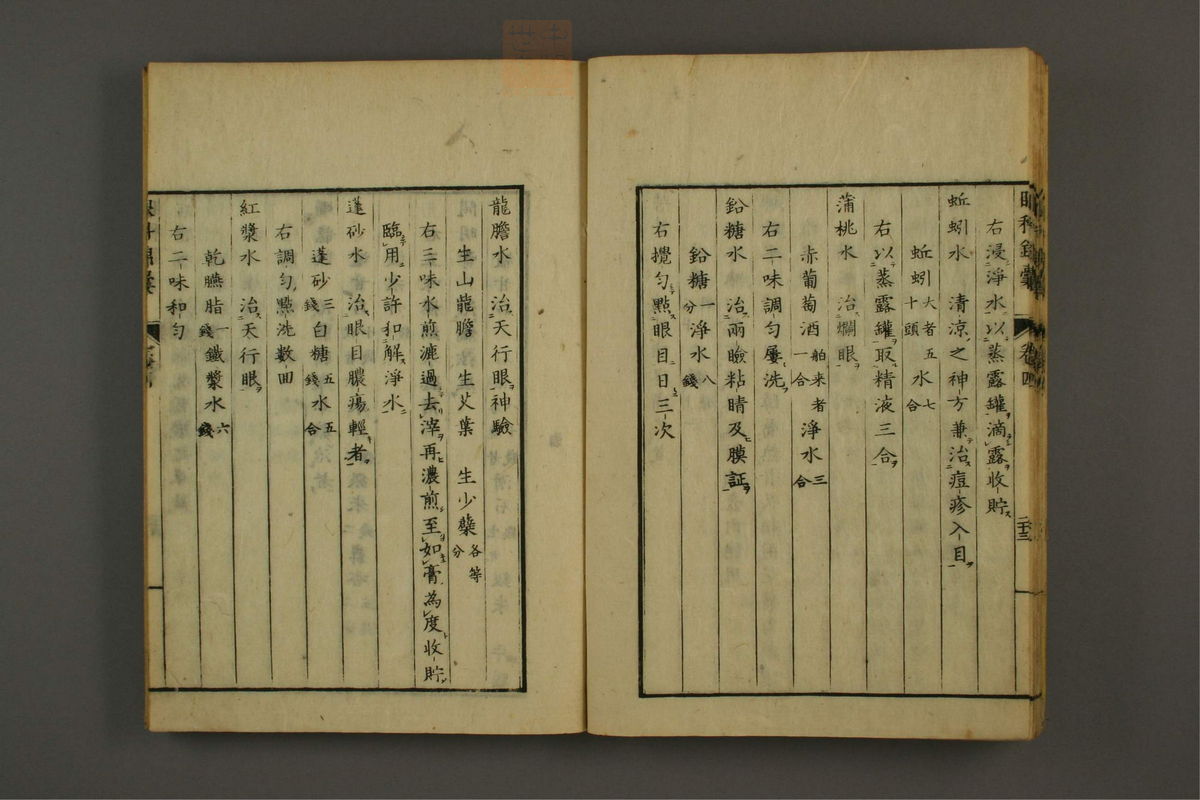 眼科錦囊 卷四 二十三
右浸淨水以蒸露罐滴露收貯
蚯蚓水 清涼之神方兼治痘疹入目
蚯蚓大者五十頭 水七合
右以蒸露罐取精液三合
蒲桃水 治爛眼
赤葡萄酒舶来者一合 淨水三合
右二味調勻屢洗
鉛糖水 治兩瞼粘睛及膜証
鉛糖一分 淨水八錢
右攪勻點眼目日三次
龍膽水 治天行眼神驗
生山龍膽 生艾葉 生少蘗各等分
右三味水煎漉過去滓再濃煎至如膏為度收貯
臨用少許和解淨水
蓬砂水 治眼目膿瘍輕者
蓬砂三錢 白糖五錢 水五合
右調勻點洗數回
紅漿水 治天行眼
乾臙脂一錢 鐵漿水六錢
右二味和勻